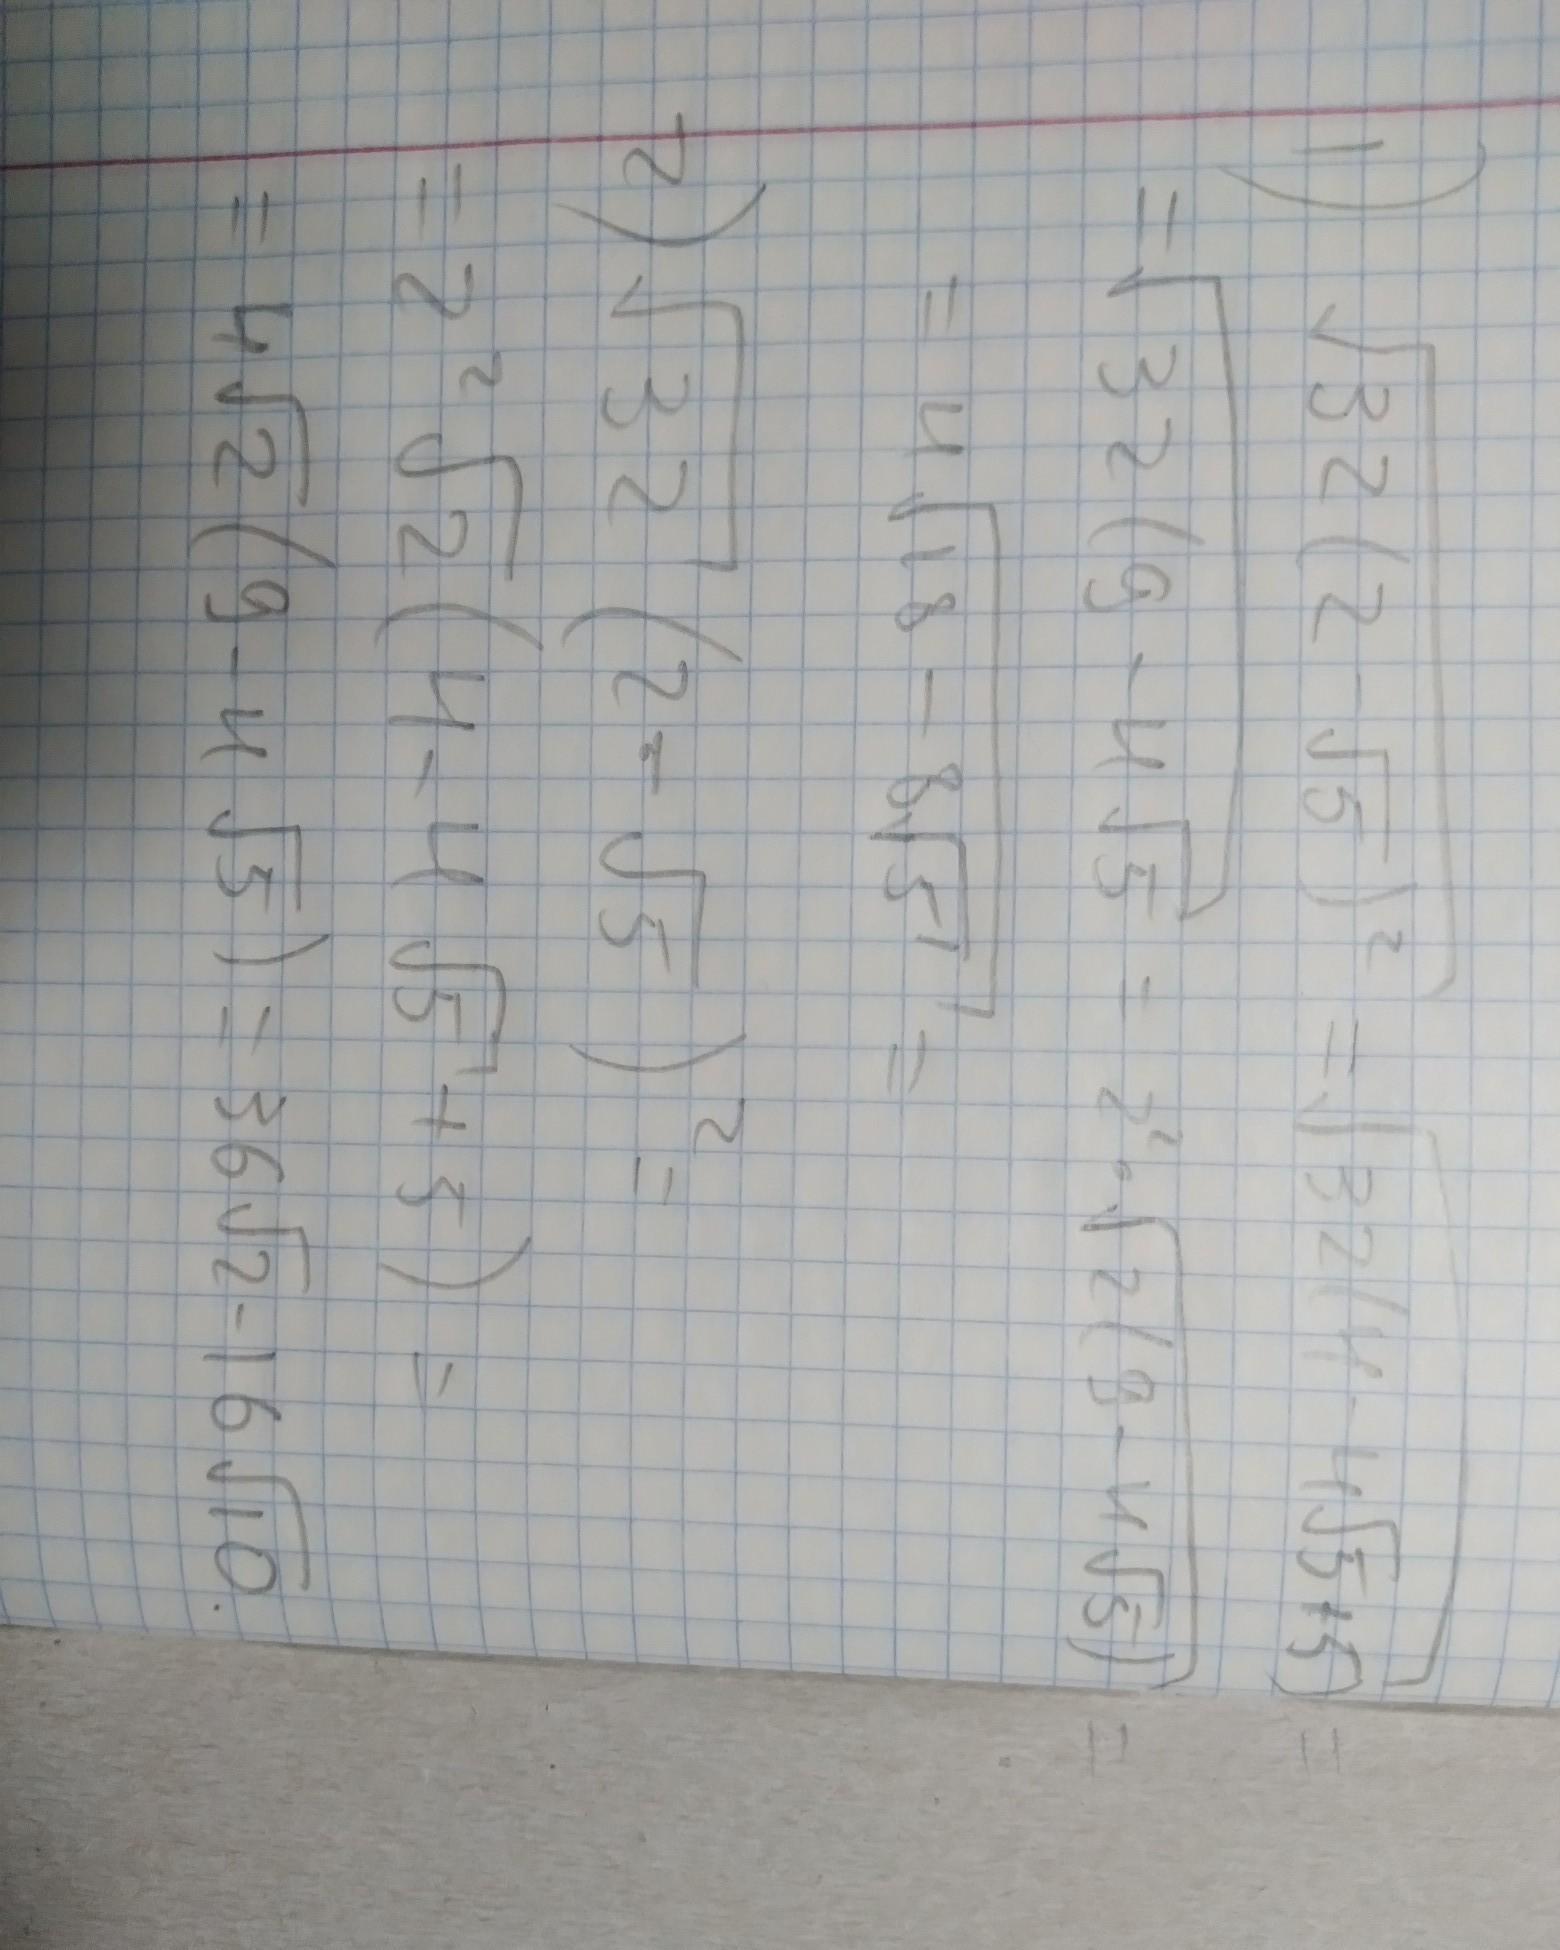 1) √(32(2-√5)²) = √(32(4-4√5+5)) =
= √(32(9-4√5 = 2²·√(2(9-4√5)) =
= 4√(18-8√5) =
2) √32 (2-√5)² =
= 2²√2(4-4√5+5) =
= 4√2(9-4√5) = 36√2-16√10.